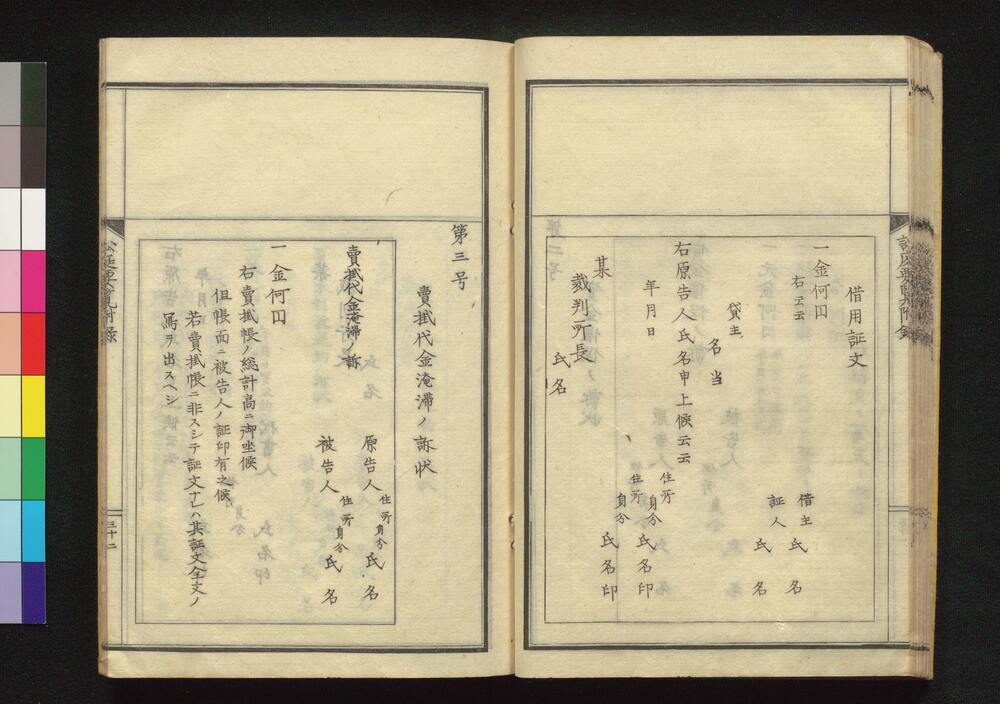 借用証文
一金何円
右云云
借主 氏名
証人 氏名
貸主
名当
右原告人氏名申上候云云
年月日
住所
身分 氏名印
住所
身分 氏名印
某
裁判所長
氏名
第三号
賣掛代金淹滞ノ訴状
賣掛代金淹滞ノ訴
原告人 住所 身分 氏名
被告人 住所 身分 氏名
一金何円
右賣掛帳ノ総計高ニ御坐候
但帳面ニ被告人ノ証印有之候
若賣掛帳ニ非スシテ証文ナレハ其証文全文ノ
寫ヲ出スヘシ
三十二